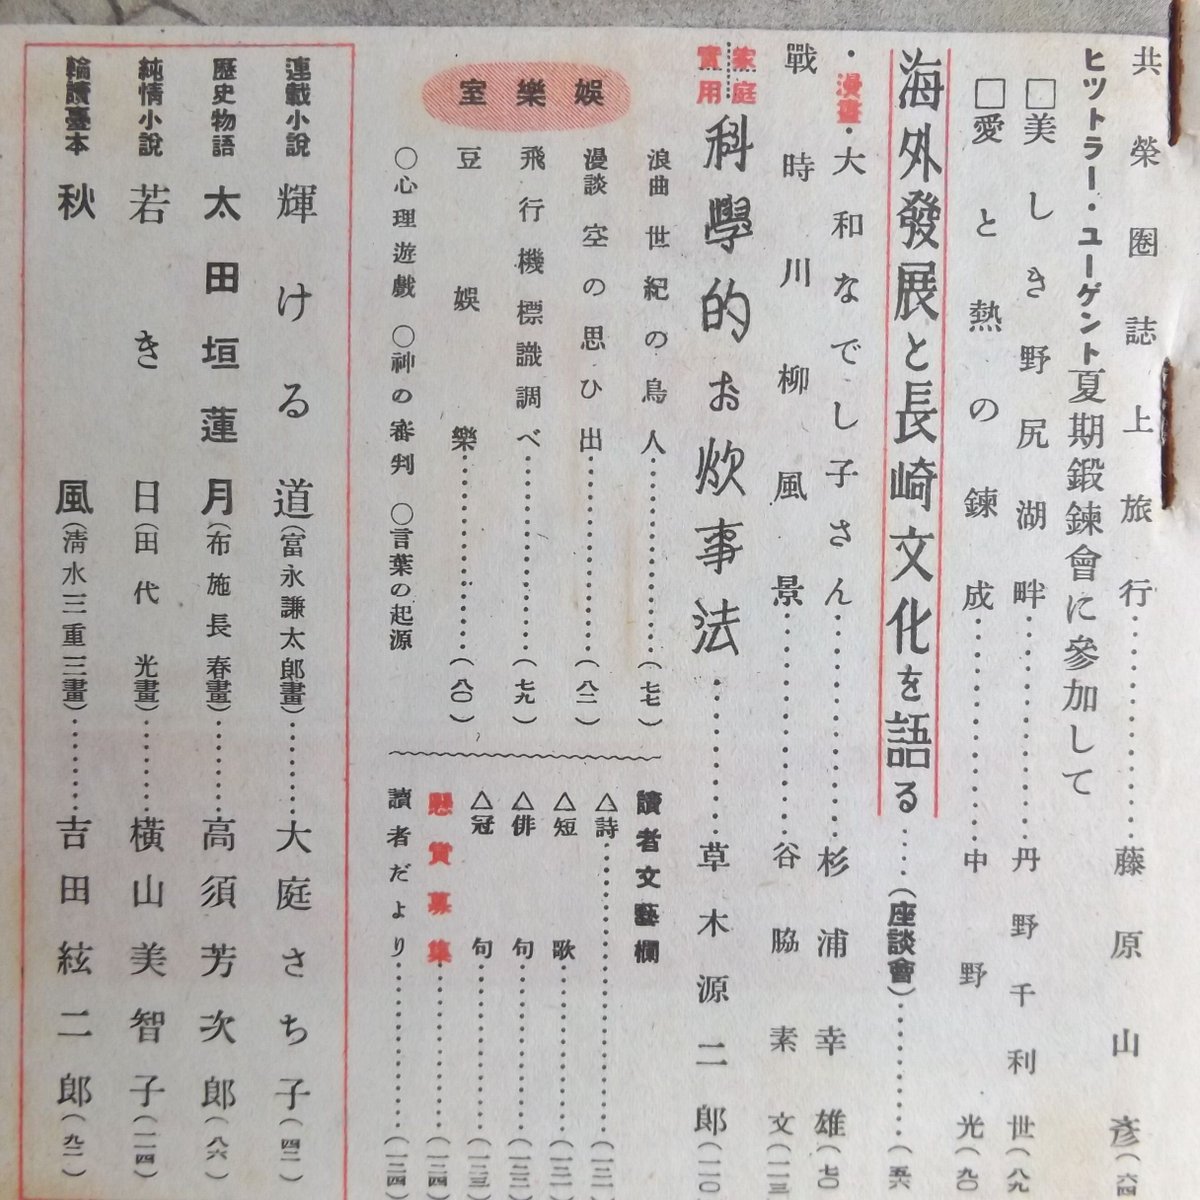 共榮圏誌上旅行……………藤原山彦(六四
ヒツトラー・ユーゲント夏期鍛鍊會に參加して
□美しき野尻湖畔……………丹野千利世(八九
□愛と熱の鍊成……………中野光(九〇
海外發展と長崎文化を語る……(座談會)……………(五六
・漫畫・大和なでし子さん……………杉浦幸雄(七〇
戰時川柳風景……………谷脇素文(一一三
家庭實用 科學的お炊事法……………草木源二郎(一一〇
娯樂室
浪曲 世紀の鳥人……………(七七)
漫談 空の思ひ出……………(八二)
飛行機標識調べ……………(七九)
豆娯樂……………(八〇)
○心理遊戲 ○神の審判 ○言葉の起源
讀者文藝欄
△詩……………(一二一
△短歌……………(一二二
△俳句……………(一二三
△冠句……………(一二三)
懸賞募集……………(一二四)
讀者だより……………(一二四)
連載小說 輝ける道(富永謙太郎畫)………大庭さち子(四二)
歷史物語 太田垣蓮月(布施長春畫)………高須芳次郎(八六)
純情小說 若き日(田代光畫)………橫山美智子(一一四)
輪讀臺本 秋風(淸水三重三畫)………吉田絃二郎(九二)